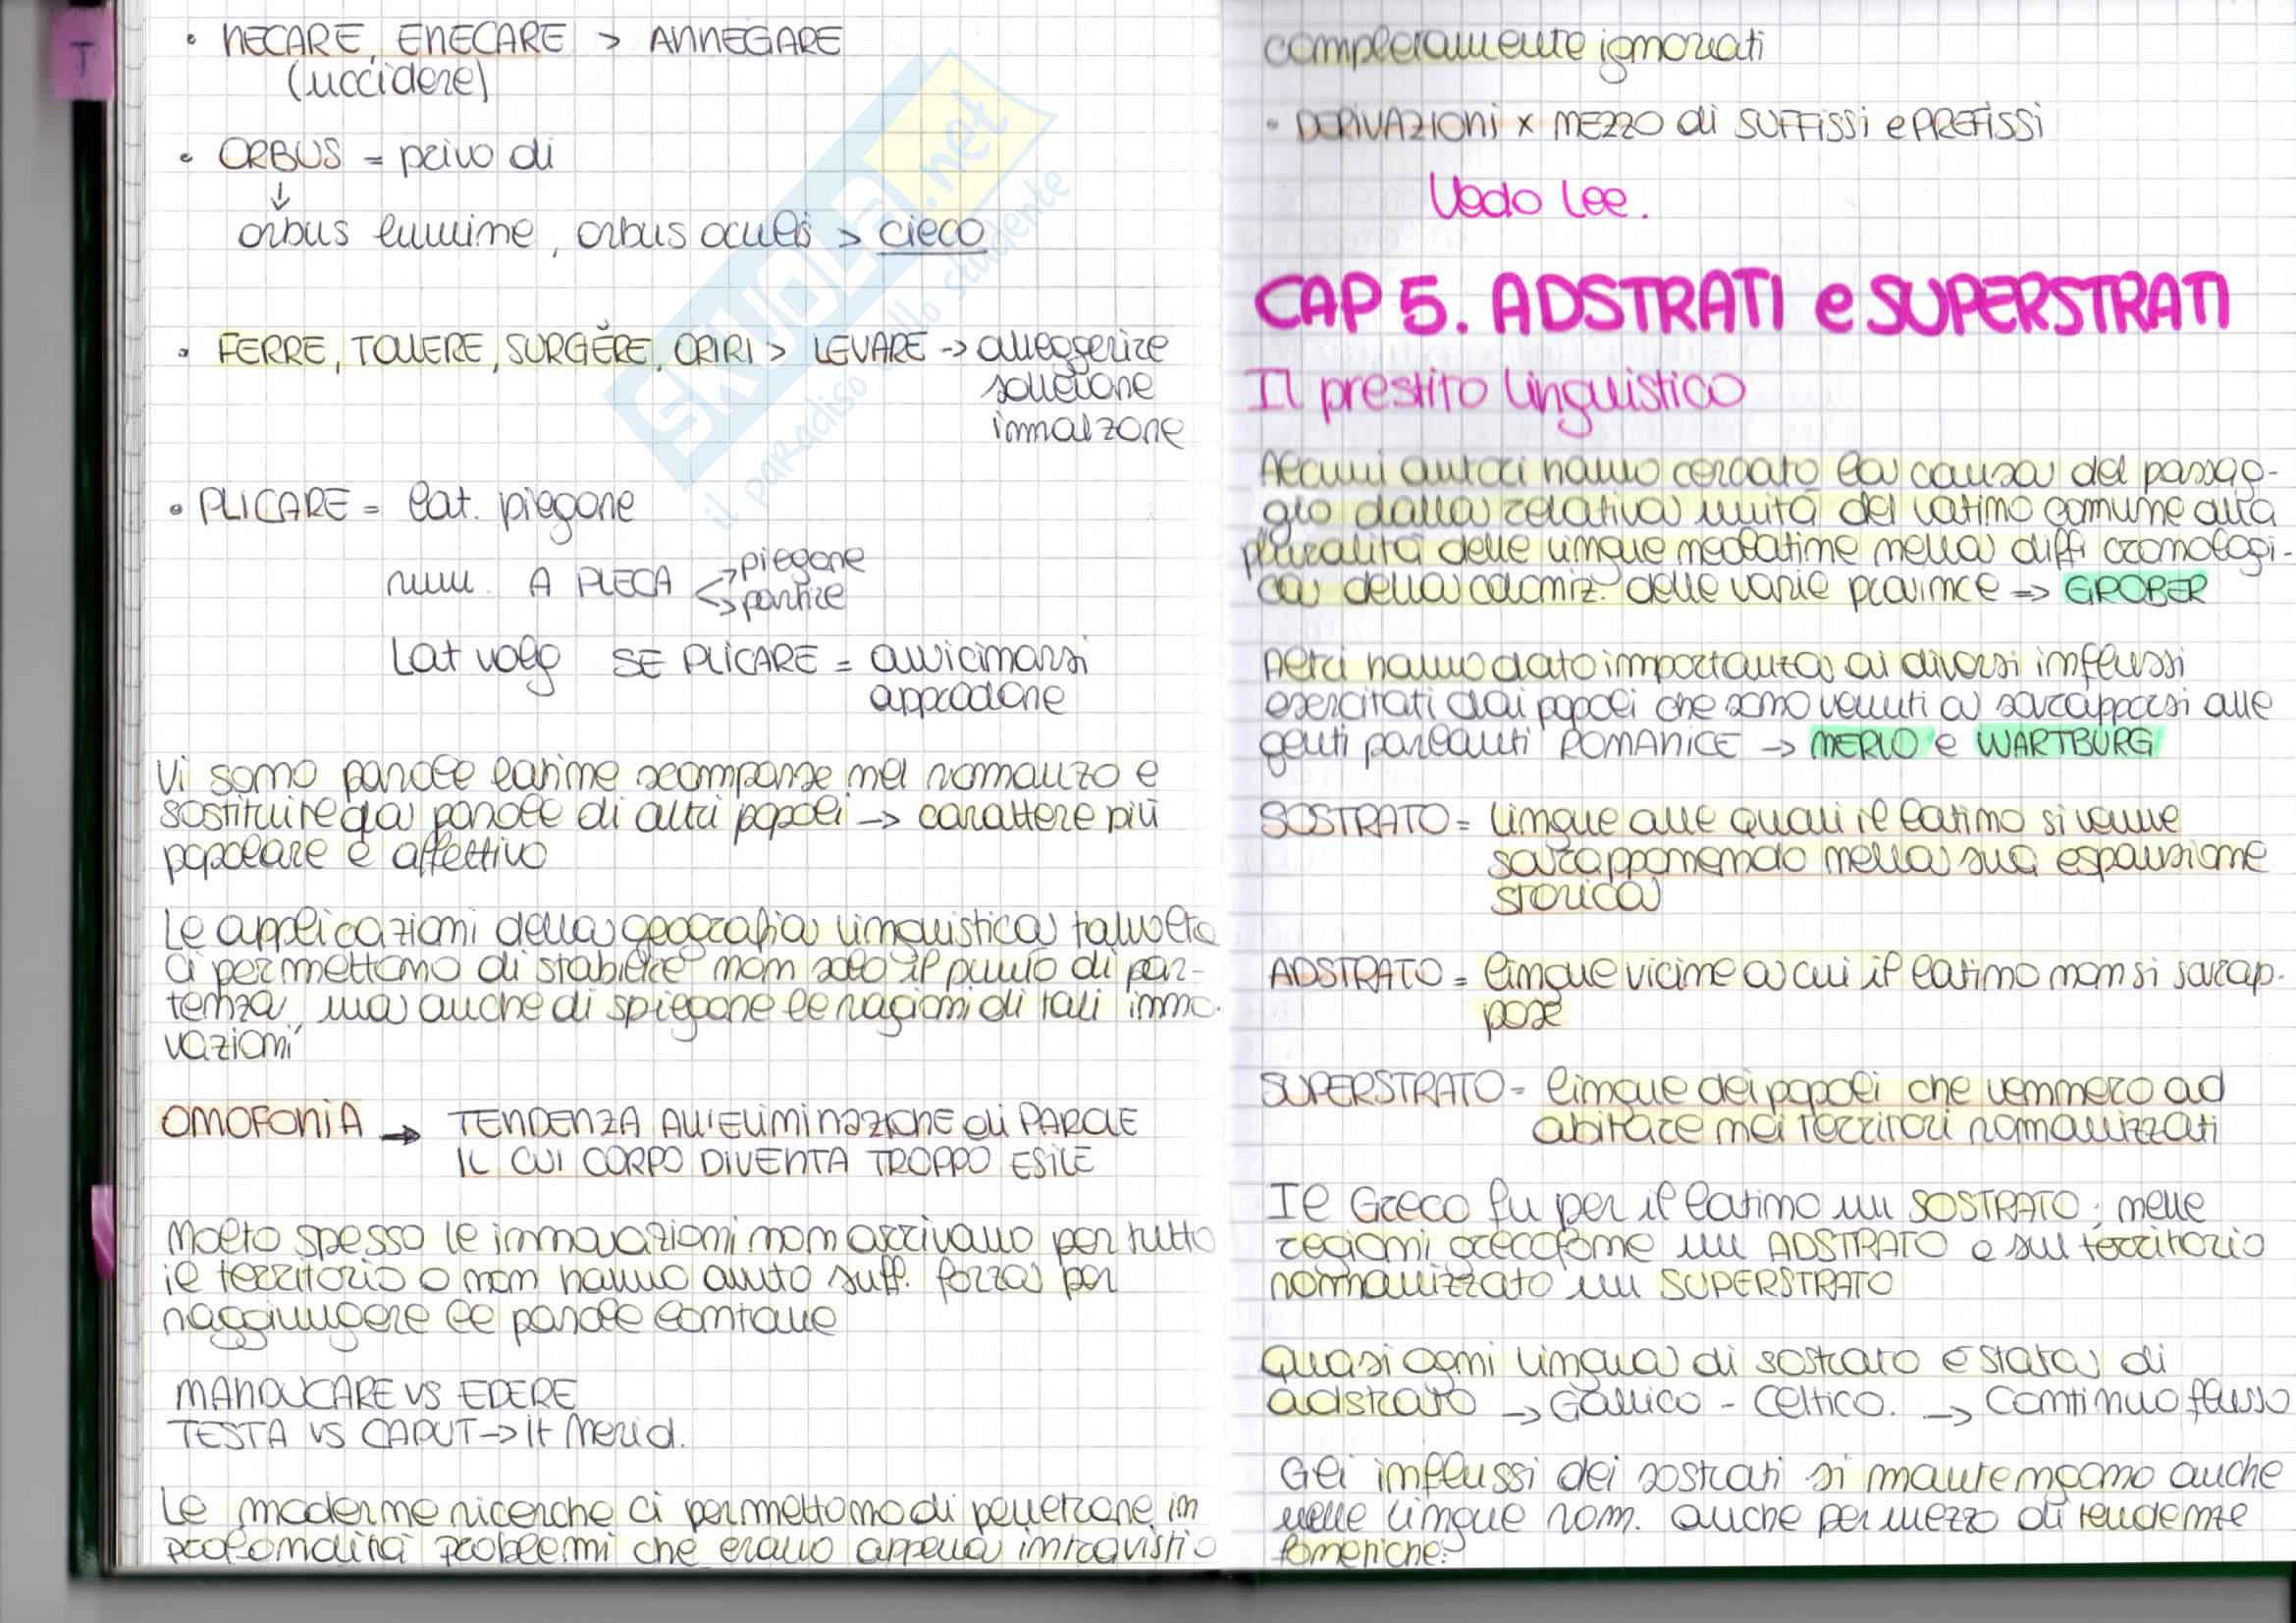 T
• NECARE, ENECARE > ANNEGARE
(uccidere)
• ORBUS = privo di
↓
orbus lumine, orbus oculis > cieco
• FERRE, TOLLERE, SURGĔRE, ORIRI > LEVARE -> alleggerire
sollevare
innalzare
• PLICARE = lat. piegare
rum. A PLECA -> piegare
-> partire
Lat volg SE PLICARE = avvicinarsi
approdare
Vi sono parole latine scomparse nel romanzo e
sostituite da parole di altri popoli -> carattere più
popolare e affettivo
Le applicazioni della geografia linguistica talvolta
ci permettono di stabilire non solo il punto di par-
tenza, ma anche di spiegare le ragioni di tali inno-
vazioni
OMOFONIA -> TENDENZA ALL'ELIMINAZIONE di PAROLE
IL CUI CORPO DIVENTA TROPPO ESILE
Molto spesso le innovazioni non arrivano per tutto
il territorio o non hanno avuto suff. forza per
raggiungere le parole lontane
MANDUCARE VS EDERE
TESTA VS CAPUT -> it Merid.
Le moderne ricerche ci permettono di penetrare in
profondità problemi che erano appena intravisti o
SKUOLA.net
il paradiso dello studente
completamente ignorati
• DERIVAZIONI x MEZZO di SUFFISSI e PREFISSI
Vedo Lee.
CAP 5. ADSTRATI e SUPERSTRATI
Il prestito linguistico
Alcuni autori hanno cercato la causa del passag-
gio dalla relativa unità del latino comune alla
pluralità delle lingue neolatine nella diff. cronologi-
ca della coloniz. delle varie province => GROBER
Altri hanno dato importanza ai diversi influssi
esercitati dai popoli che sono venuti a sovrapporsi alle
genti parlanti ROMANICE -> MERLO e WARTBURG
SOSTRATO = lingue alle quali il latino si venne
sovrapponendo nella sua espansione
storica
ADSTRATO = lingue vicine a cui il latino non si sovrap-
pose
SUPERSTRATO = lingue dei popoli che vennero ad
abitare nei territori romanizzati
Il Greco fu per il latino un SOSTRATO; nelle
regioni grecofone un ADSTRATO e sul territorio
romanizzato un SUPERSTRATO
Quasi ogni lingua di sostrato è stata di
adstrato -> Gallico - Celtico. -> Continuo flusso
Gli influssi dei sostrati si mantengono anche
nelle lingue rom. anche per mezzo di tendenze
fonetiche: